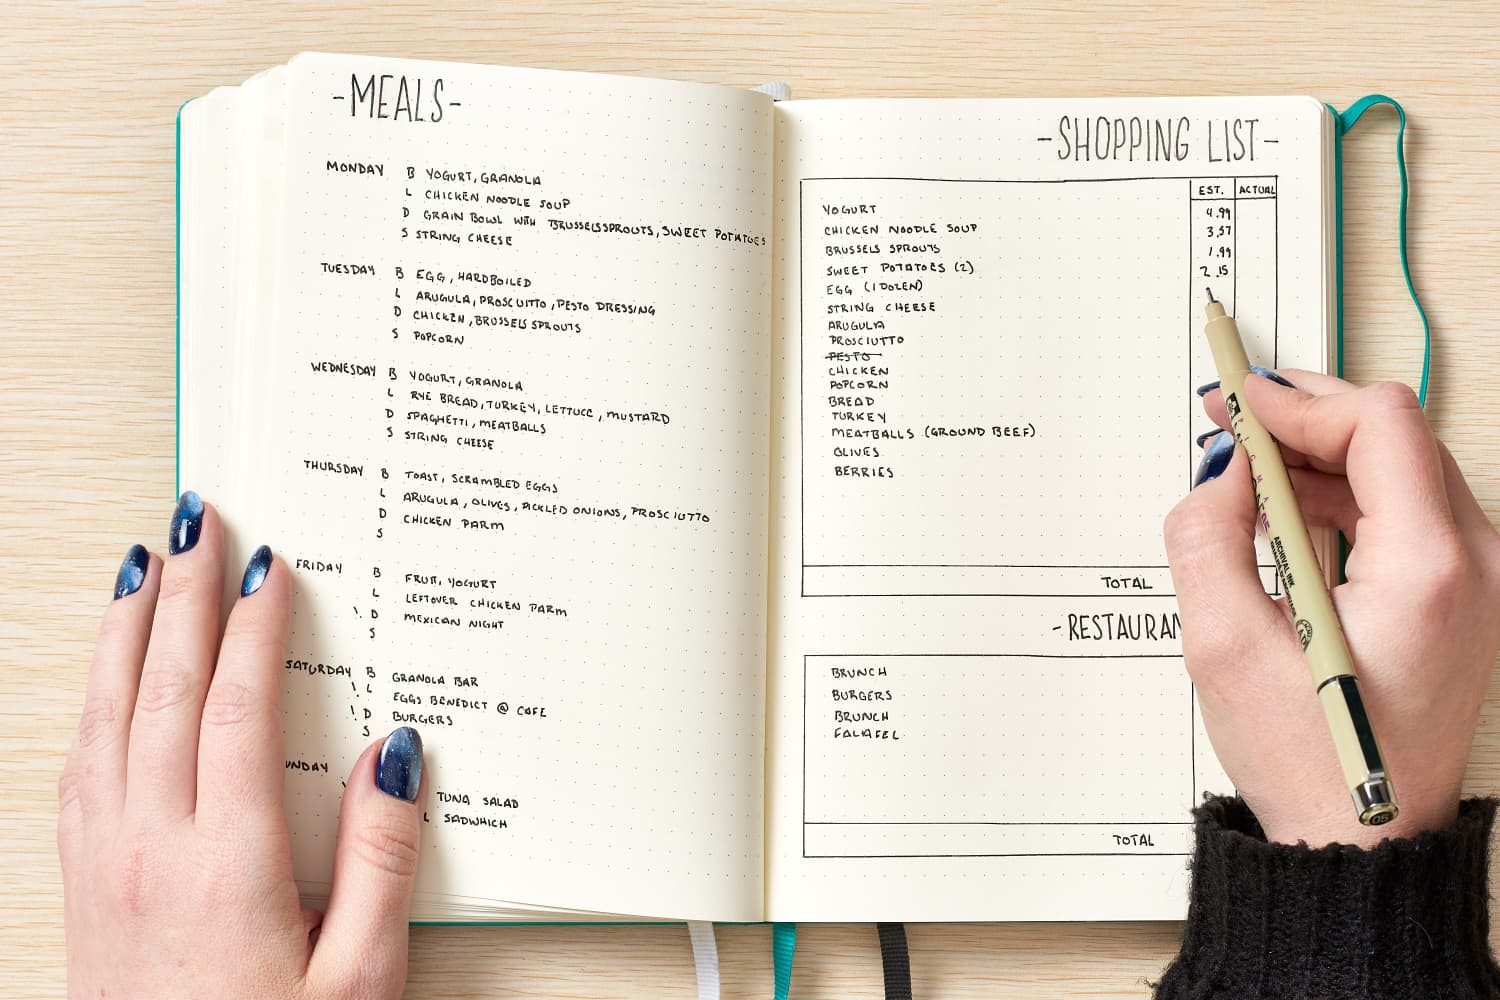 -MEALS-
MONDAY B YOGURT, GRANOLA
L CHICKEN NOODLE SOUP
D GRAIN BOWL WITH BRUSSELSSPROUTS, SWEET POTATOES
S STRING CHEESE
TUESDAY B EGG, HARDBOILED
L ARUGULA, PROSCUITTO, PESTO DRESSING
D CHICKEN, BRUSSELS SPROUTS
S POPCORN
WEDNESDAY B YOGURT, GRANOLA
L RYE BREAD, TURKEY, LETTUCE, MUSTARD
D SPAGHETTI, MEATBALLS
S STRING CHEESE
THURSDAY B TOAST, SCRAMBLED EGGS
L ARUGULA, OLIVES, PICKLED ONIONS, PROSCIUTTO
D CHICKEN PARM
S
FRIDAY B FRUIT, YOGURT
L LEFTOVER CHICKEN PARM
! D MEXICAN NIGHT
S
SATURDAY B GRANOLA BAR
! L EGGS BENEDICT @ CAFE
! D BURGERS
S
UNDAY
TUNA SALAD
L SADWHICH
-SHOPPING LIST-
EST. ACTUAL
YOGURT 4.99
CHICKEN NOODLE SOUP 3.57
BRUSSELS SPROUTS 1.99
SWEET POTATOES (2) 2.15
EGG (1 DOZEN)
STRING CHEESE
ARUGULA
PROSCIUTTO
PESTO
CHICKEN
POPCORN
BREAD
TURKEY
MEATBALLS (GROUND BEEF)
OLIVES
BERRIES
TOTAL
-RESTAURAN
BRUNCH
BURGERS
BRUNCH
FALAFEL
TOTAL
ARCHIVAL INK
05